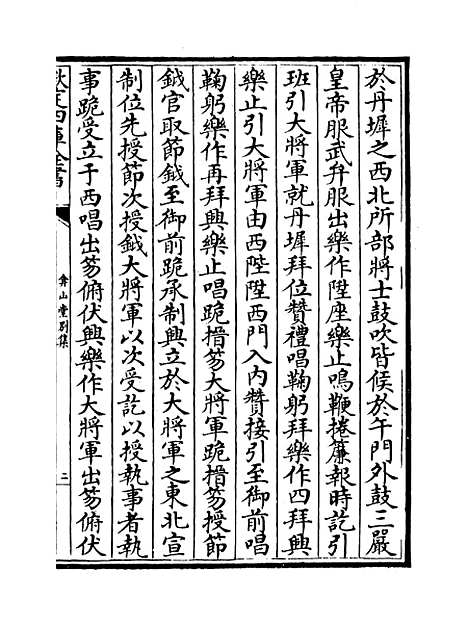 於丹墀之西北所部將士鼓吹皆候於午門外鼓三嚴
皇帝服武弁服出樂作陞座樂止鳴鞭捲簾報時訖引
班引大將軍就丹墀拜位贊禮唱鞠躬拜樂作四拜興
樂止引大將軍由西陛陞西門入内贊接引至御前唱
鞠躬樂作再拜興樂止唱跪搢笏大將軍跪搢笏授節
鉞官取節鉞至御前跪承制興立於大將軍之東北宣
制位先授節次授鉞大將軍以次受訖以授執事者執
事跪受立于西唱出笏俯伏興樂作大將軍出笏俯伏
欽定四庫全書
弇山堂別集
二